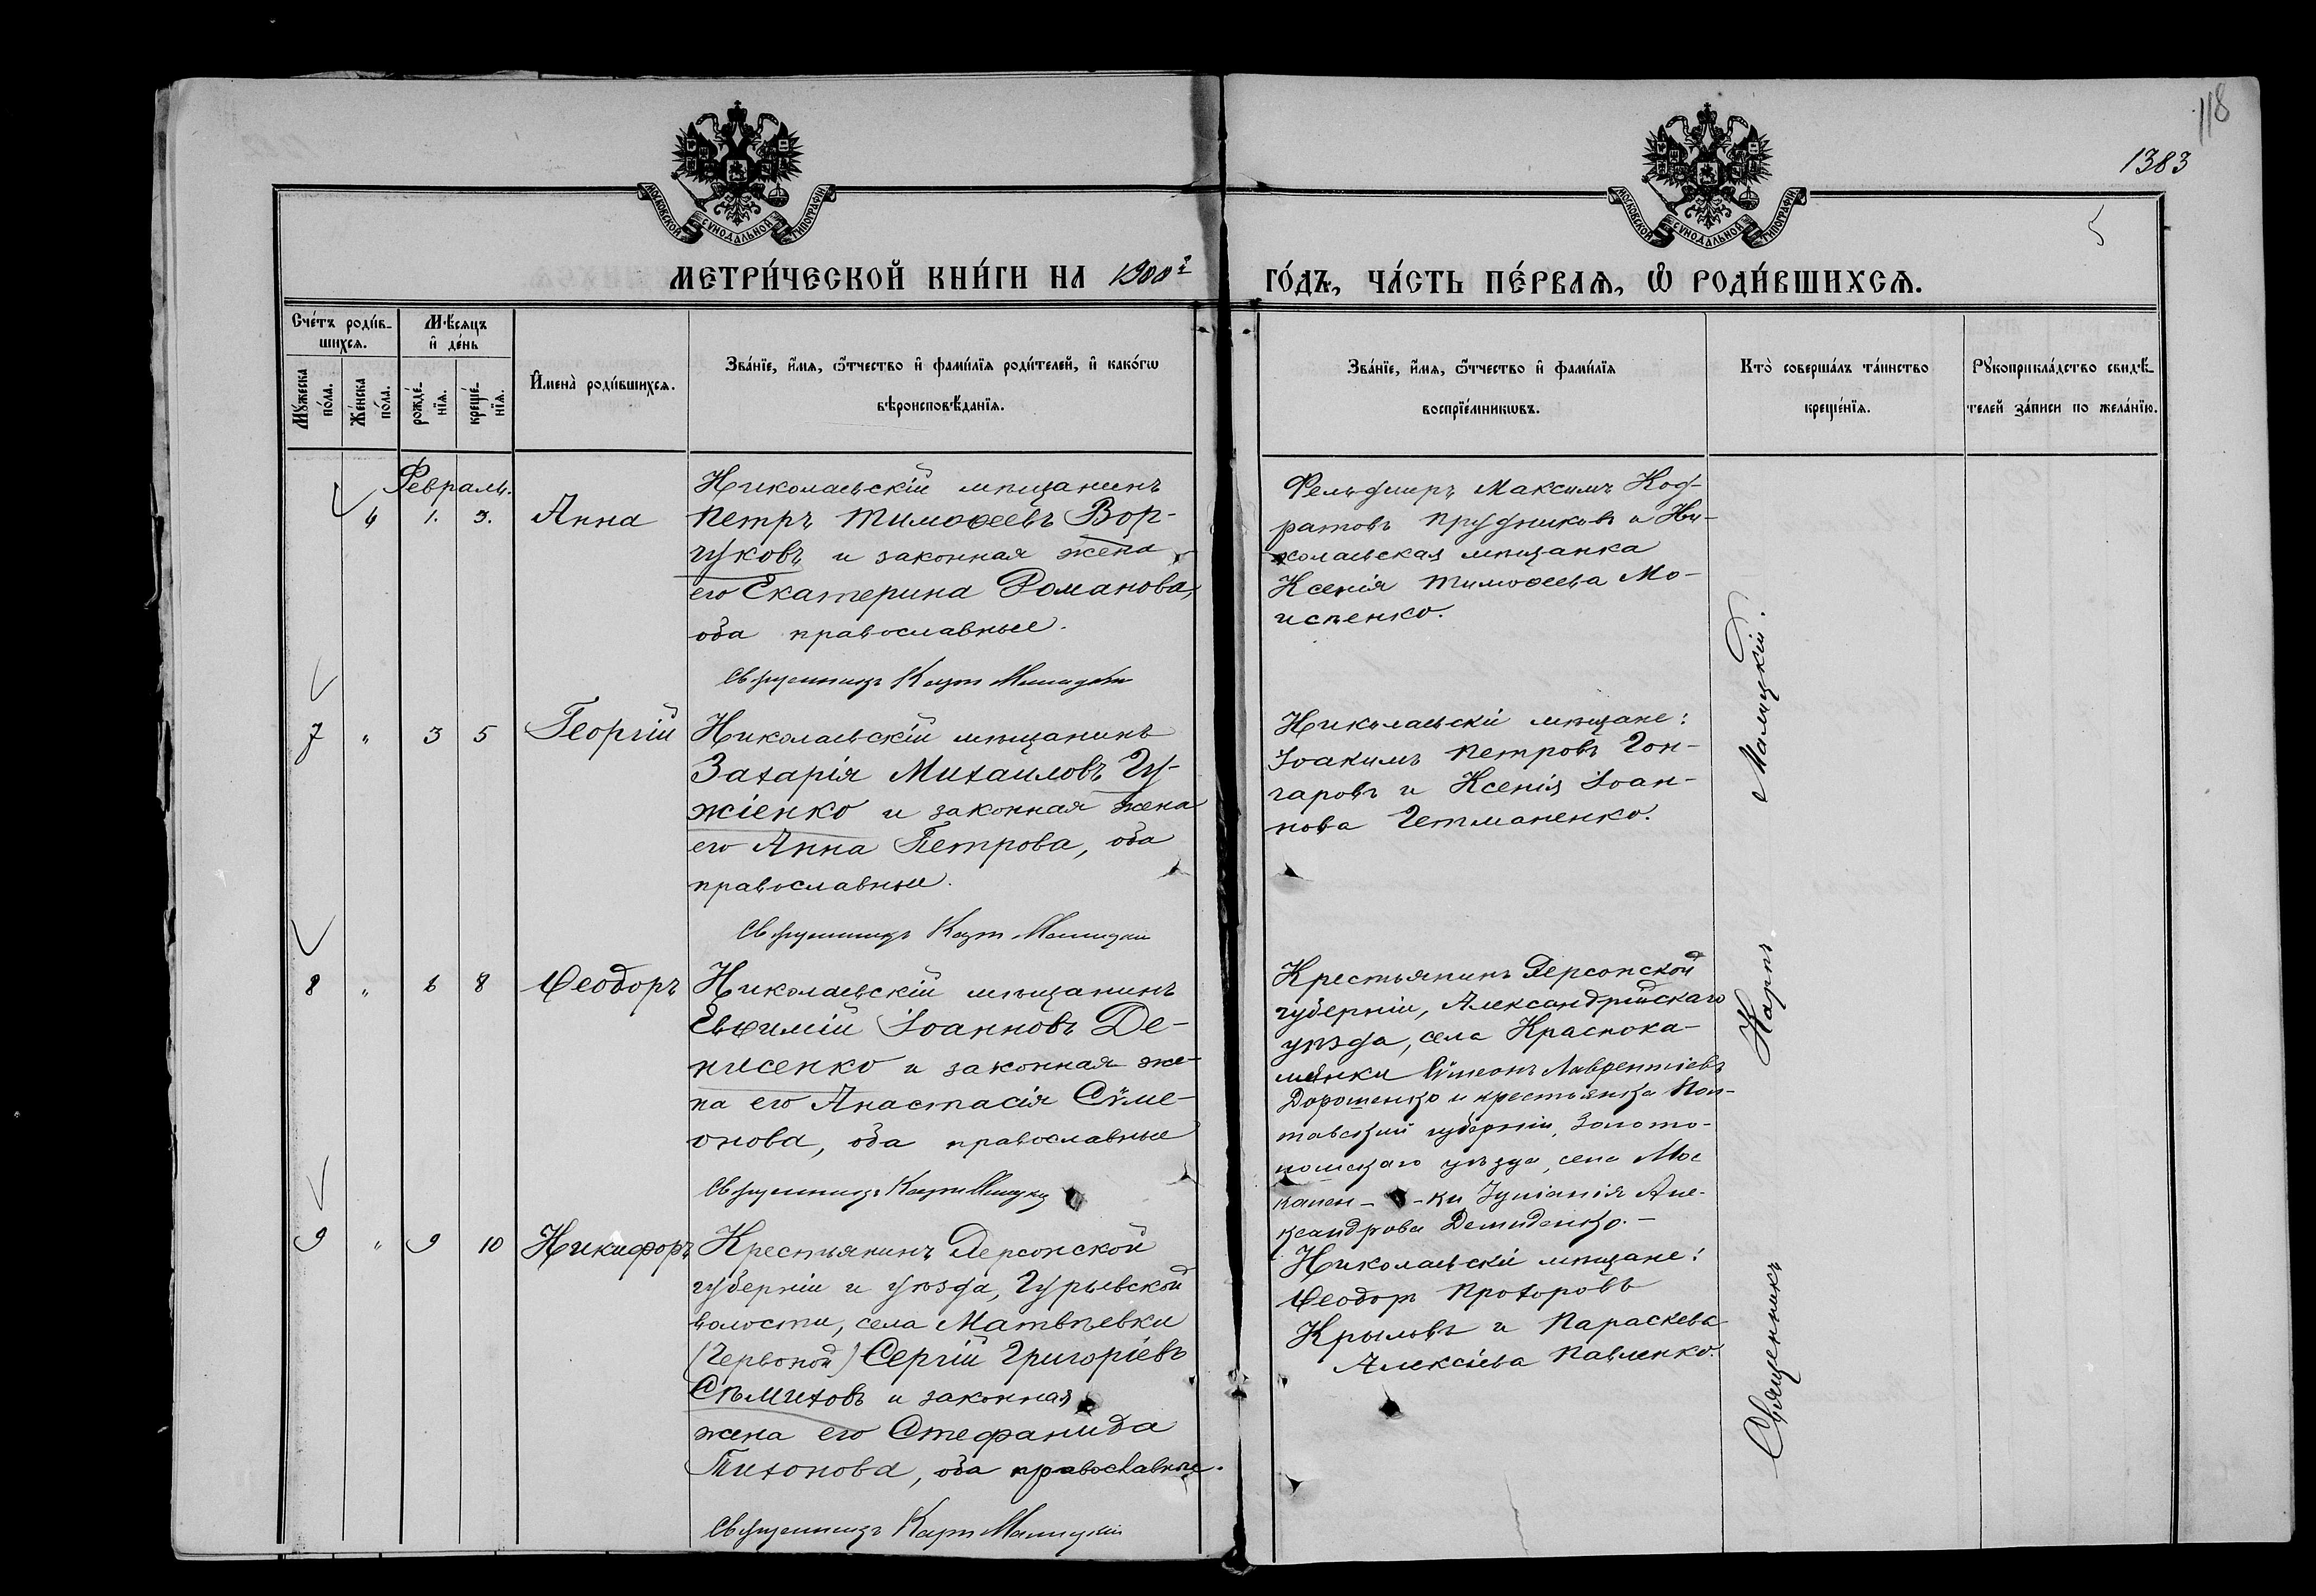 118
1383
5
МОСКОВСКОЙ СѴНОДАЛЬНОЙ ТИПОГРАФІИ
МОСКОВСКОЙ СѴНОДАЛЬНОЙ ТИПОГРАФІИ
МЕТРИ́ЧЕСКОЙ КНИ́ГИ НА 1900 г
ГО́ДЪ, ЧА́СТЬ ПЕ́РВАѦ, Ѽ РОДИ́ВШИХСѦ.
Сче́тъ роди́в-
шихсѧ.
Мꙋ́жеска по́ла.
Же́нска по́ла.
Мѣ́сѧцъ
и҆ де́нь
рожде́-
нїѧ.
креще́-
нїѧ.
И҆мена̀ роди́вшихсѧ.
Зва́нїе, и҆́мѧ, ѻ҆́тчество и҆ фами́лїѧ роди́телей, и҆ како́гѡ
вѣроисповѣ́данїѧ.
Зва́нїе, и҆́мѧ, ѻ҆́тчество и҆ фами́лїѧ
воспрїе́мникѡвъ.
Кто̀ соверша́лъ та́инство
креще́нїѧ.
Рꙋкоприкла́дство свидѣ́-
телей за́писи по жела́нїю.
Февраль.
4 1. 3. Анна
Николаевскій мѣщанинъ
Петръ Тимоѳеевъ Вор-
чуковъ и законная жена
его Екатерина Романова,
оба православные.
Священникъ Карпъ Малицкій
Фельдшеръ Максимъ Код-
ратовъ Прудниковъ и Ни-
колаевская мѣщанка
Ксенія Тимоѳеева Мо-
исѣенко.
7 " 3 5 Георгій
Николаевскій мѣщанинъ
Захарія Михаиловъ Гу-
жіенко и законная жена
его Анна Петрова, оба
православные.
Священникъ Карпъ Малицкій
Николаевскіе мѣщане:
Іоакимъ Петровъ Гон-
чаровъ и Ксенія Іоан-
нова Гетманенко.
8 " 6 8 Ѳеодоръ
Николаевскій мѣщанинъ
Евѳимій Іоанновъ Де-
нисенко и законная же-
на его Анастасія Сѵме-
онова, оба православные
Священникъ Карпъ Малицкій
Крестьянинъ Херсонской
губерніи, Александрійскаго
уѣзда, села Краснока-
менки Сѵмеонъ Лаврентіевъ
Дорошенко и крестьянка Пол-
тавской губерніи, Золото-
ношскаго уѣзда, села Мос
кален- -ки Іуліанія Але-
ксандрова Демиденко.-
9 " 9 10 Никифоръ
Крестьянинъ Херсонской
губерніи и уѣзда, Гурьевской
волости, села Матвѣевки
(Червоной) Сергій Григоріевъ
Сѣмиховъ и законная
жена его Стефанида
Тихонова, оба православные.
Священникъ Карпъ Малицкій
Николаевскіе мѣщане:
Ѳеодоръ Прохоровъ
Крыловъ и Параскева
Алексіева Павленко.
Священникъ Карпъ Малицкій.